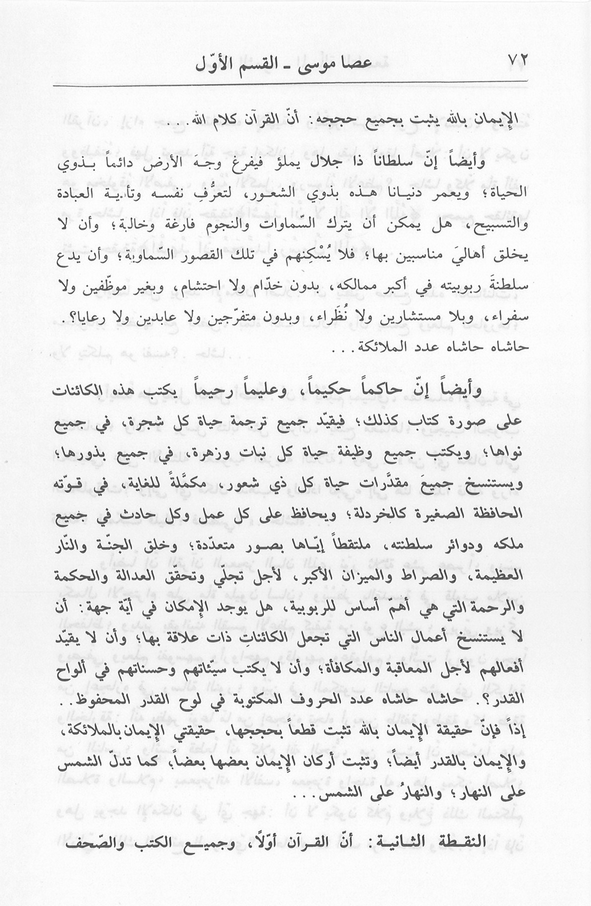 ٧٢ عصا موسى ـ القسم الأوّل
الإيمان بالله يثبت بجميع حججه: أنّ القرآن كلام الله...
وأيضاً إنّ سلطاناً ذا جلال يملؤ فيفرغ وجهَ الأرض دائماً بـذوي
الحياة؛ ويعمر دنيـانا هـذه بذوي الشعور، لتعرُّفِ نفسه وتأديـة العبادة
والتسبيح، هل يمكن أن يترك السّماوات والنجوم فارغة وخالية؛ وأن لا
يخلق أهاليَ مناسبين بها؛ فلا يُسْكِنهم في تلك القصور السّماوية؛ وأن يدع
سلطنةَ ربوبيته في أكبر ممالكه، بدون خدّام ولا احتشام، وبغير موظّفين ولا
سفراء، وبلا مستشارين ولا نُظّراء، وبدون متفرّجين ولا عابدين ولا رعايا؟.
حاشاه حاشاه عدد الملائكة...
وأيضاً إنّ حاكماً حكيماً، وعليماً رحيماً يكتب هذه الكائنات
على صورة كتاب كذلك؛ فيقيّد جميع ترجمة حياة كل شجرة، في جميع
نواها؛ ويكتب جميع وظيفة حياة كل نبات وزهرة، في جميع بذورها؛
ويستنسخ جميعَ مقدَّرات حياة كل ذي شعور، مكمَّلةً للغاية، في قـوّته
الحافظة الصغيرة كالخردلة؛ ويحافظ على كل عمل وكل حادث في جميع
ملكه ودوائر سلطنته، ملتقطاً إيّـاها بصـور متعدّدة؛ وخلق الجنّـة والنّار
العظيمة، والصراط والميزان الأكبر، لأجل تجلّي وتحقق العدالة والحكمة
والرحمة التي هي أهم أساس للربوبية، هل يوجد الإمكان في أيّة جهة: أن
لا يستنسخ أعمال الناس التي تجعل الكائنات ذات علاقة بها؛ وأن لا يقيّد
أفعالهم لأجل المعاقبة والمكافأة؛ وأن لا يكتب سيّئاتهم وحسناتهم في ألواح
القدر؟. حاشاه حاشاه عدد الحروف المكتوبة في لوح القدر المحفوظ..
إذاً فإنّ حقيقة الإيمان بالله تثبت قطعاً بحججها، حقيقتي الإيمان بالملائكة،
والإيمان بالقدر أيضاً؛ وتثبت أركان الإيمان بعضها بعضاً، كما تدلّ الشمس
على النهار؛ والنهارُ على الشمس...
النقـطة الثـانيـة: أنّ القـرآن أوّلاً، وجميـع الكتب والصّحف